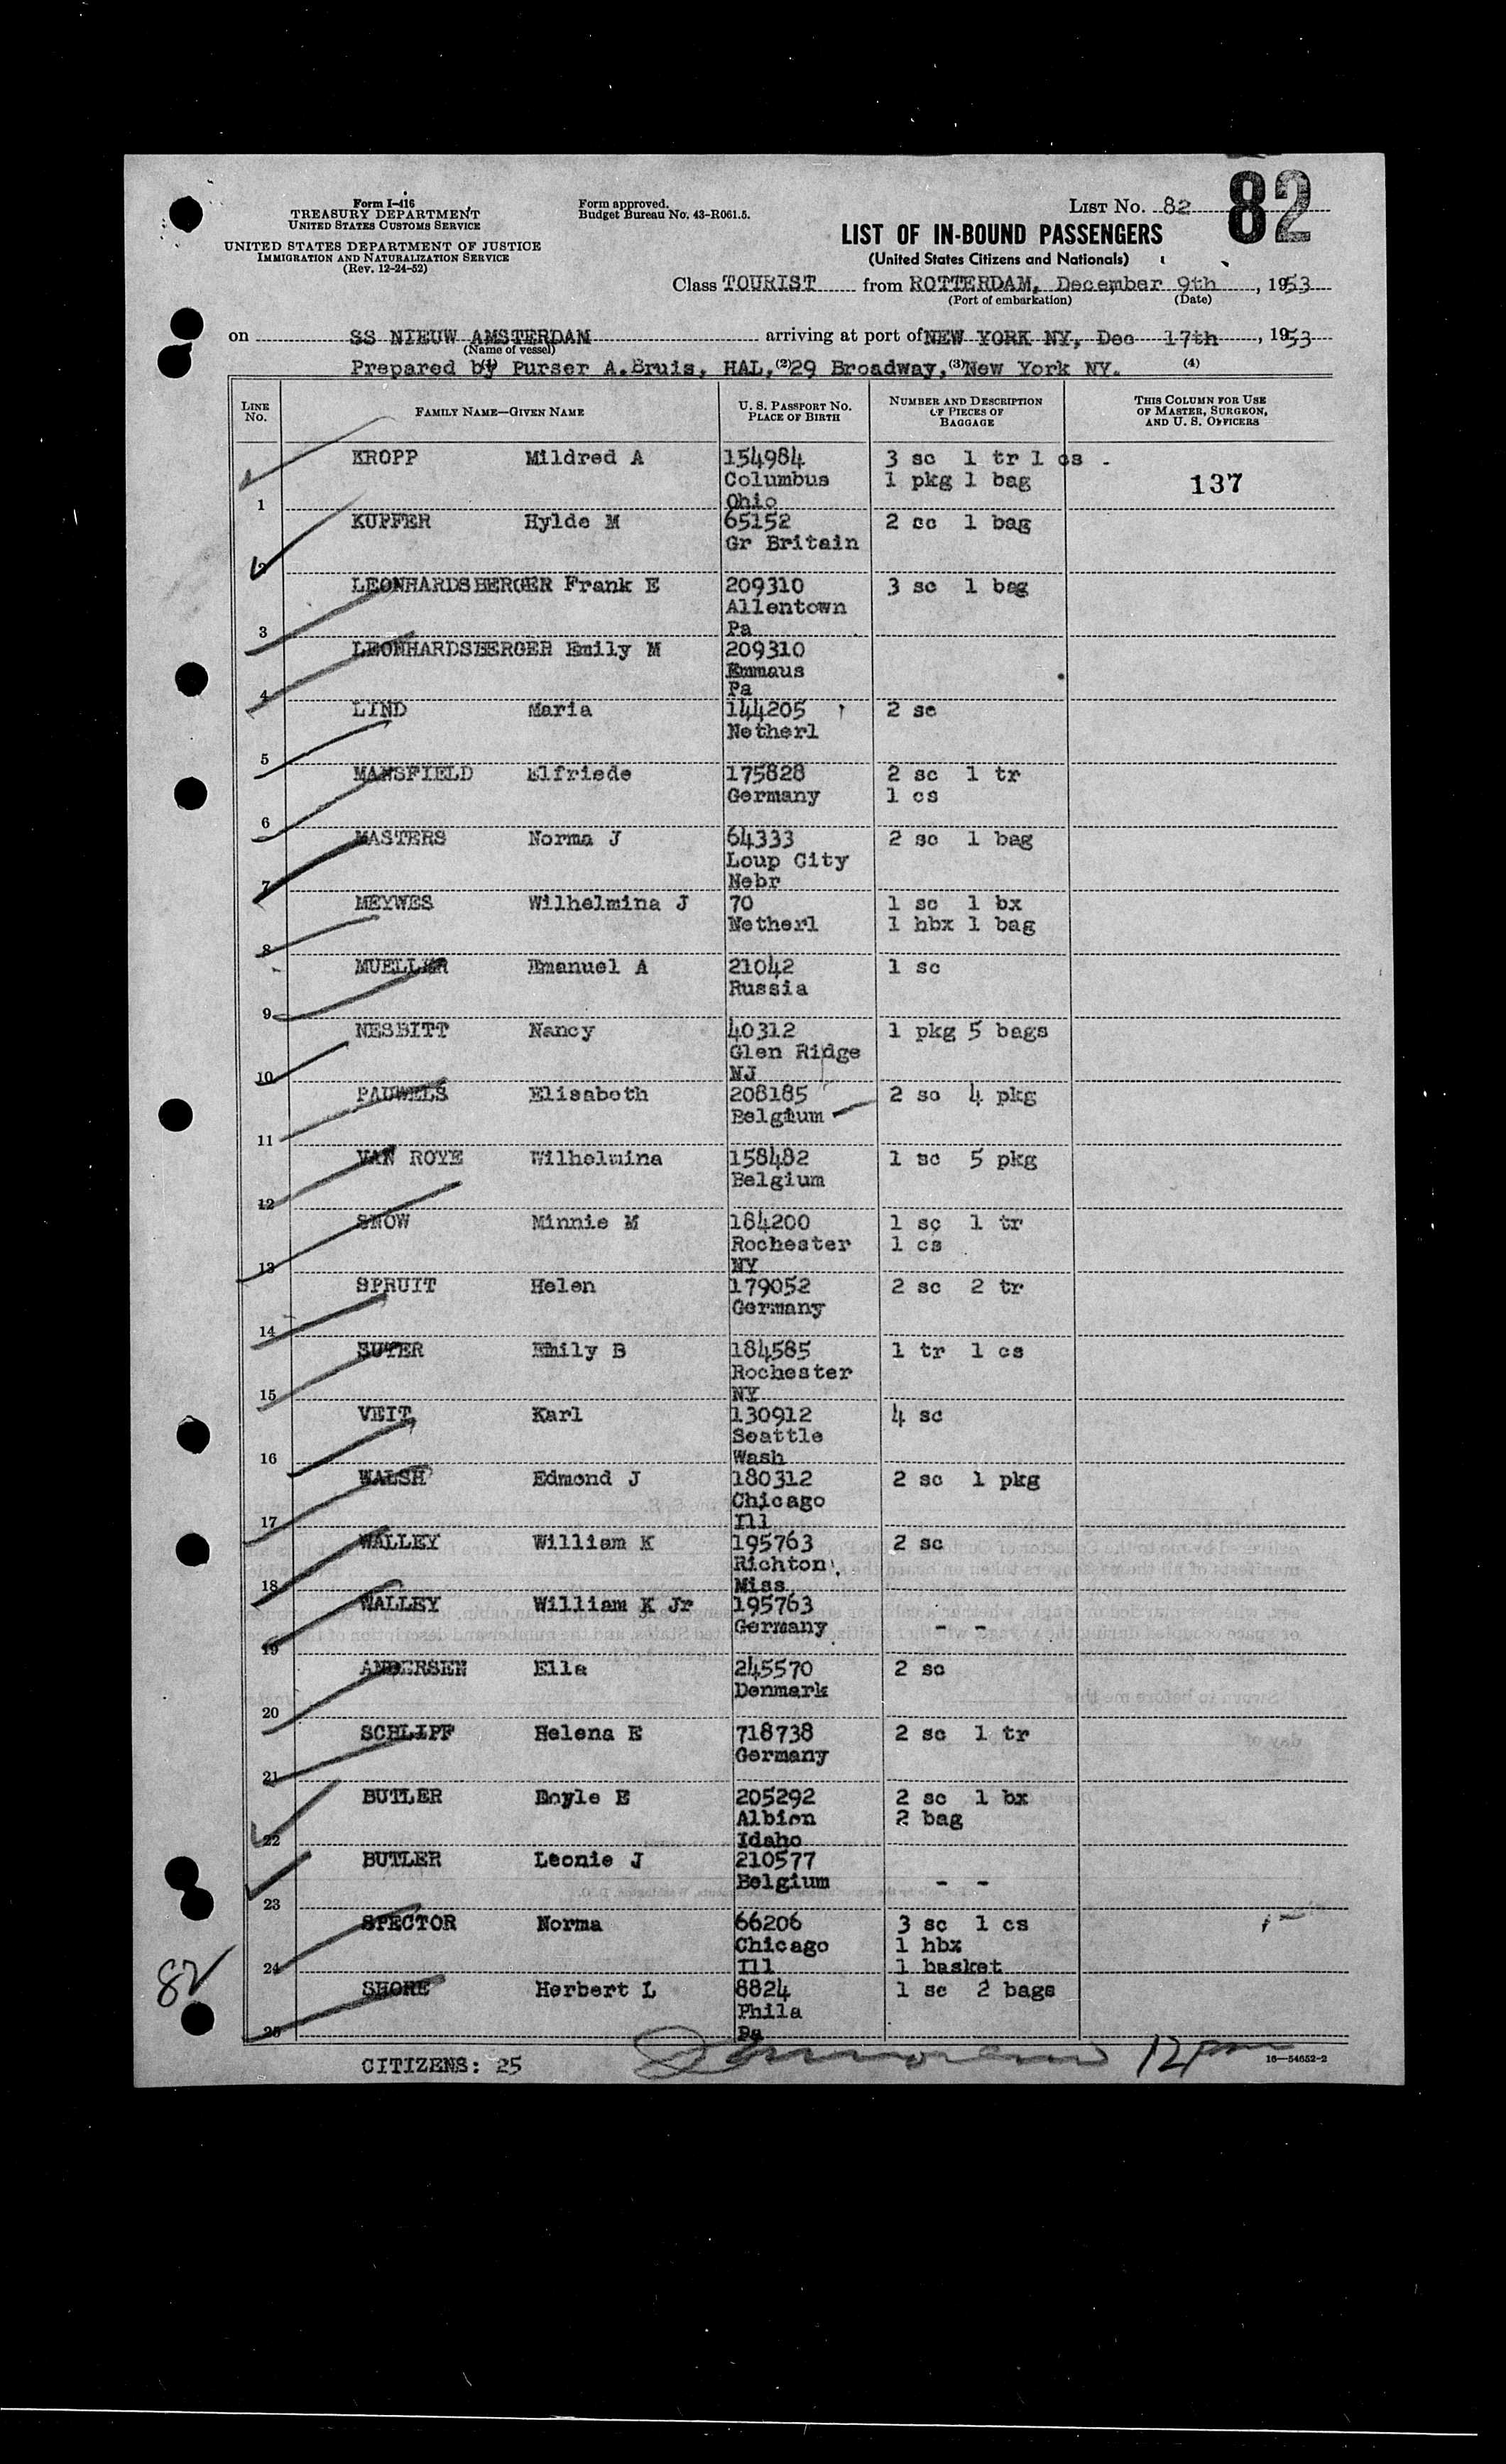 Form I-416
TREASURY DEPARTMENT
UNITED STATES CUSTOMS SERVICE
UNITED STATES DEPARTMENT OF JUSTICE
IMMIGRATION AND NATURALIZATION SERVICE
(Rev. 12-24-52)
Form approved.
Budget Bureau No. 43-R061.5.
LIST NO. 82
82
LIST OF IN-BOUND PASSENGERS
(United States Citizens and Nationals)
Class TOURIST from ROTTERDAM, December 9th, 1953
(Port of embarkation) (Date)
on SS NIEUW AMSTERDAM arriving at port of NEW YORK NY, Dec 17th, 1953
(Name of vessel)
Prepared by Purser A.Bruis, HAL, (2) 29 Broadway, (3) New York NY. (4)
LINE NO. FAMILY NAME—GIVEN NAME U. S. PASSPORT NO. PLACE OF BIRTH NUMBER AND DESCRIPTION OF PIECES OF BAGGAGE THIS COLUMN FOR USE OF MASTER, SURGEON, AND U. S. OFFICERS
KROPP Mildred A 154984 3 sc 1 tr 1 cs
Columbus 1 pkg 1 bag 137
1 Ohio
KUPFER Hylde M 65152 2 sc 1 bag
Gr Britain
2
LEONHARDSBERGER Frank E 209310 3 sc 1 bag
Allentown
3 Pa
LEONHARDSBERGER Emily M 209310
Emmaus
4 Pa
LIND Maria 144205 2 sc
Netherl
5
MANSFIELD Elfriede 175828 2 sc 1 tr
Germany 1 cs
6
MASTERS Norma J 64333 2 sc 1 bag
Loup City
7 Nebr
MEYWES Wilhelmina J 70 1 sc 1 bx
Netherl 1 hbx 1 bag
8
MUELLER Emanuel A 21042 1 sc
Russia
9
NESBITT Nancy 40312 1 pkg 5 bags
Glen Ridge
10 NJ
PAUWELS Elisabeth 208185 2 sc 4 pkg
Belgium
11
VAN ROYE Wilhelmina 158482 1 sc 5 pkg
Belgium
12
SNOW Minnie M 184200 1 sc 1 tr
Rochester 1 cs
13 NY
SPRUIT Helen 179052 2 sc 2 tr
Germany
14
SUTER Emily B 184585 1 tr 1 cs
Rochester
15 NY
VEIT Karl 130912 4 sc
Seattle
16 Wash
WALSH Edmond J 180312 2 sc 1 pkg
Chicago
17 Ill
WALLEY William K 195763 2 sc
Richton
18 Miss
WALLEY William K Jr 195763
Germany - -
19
ANDERSEN Ella 245570 2 sc
Denmark
20
SCHLIPF Helena E 718738 2 sc 1 tr
Germany
21
BUTLER Doyle E 205292 2 sc 1 bx
Albion 2 bag
22 Idaho
BUTLER Leonie J 210577
Belgium - -
23
SPECTOR Norma 66206 3 sc 1 cs
Chicago 1 hbx
24 Ill 1 basket
SHORE Herbert L 8824 1 sc 2 bags
Phila
25 Pa
82
CITIZENS: 25 12 pm
16—54652-2